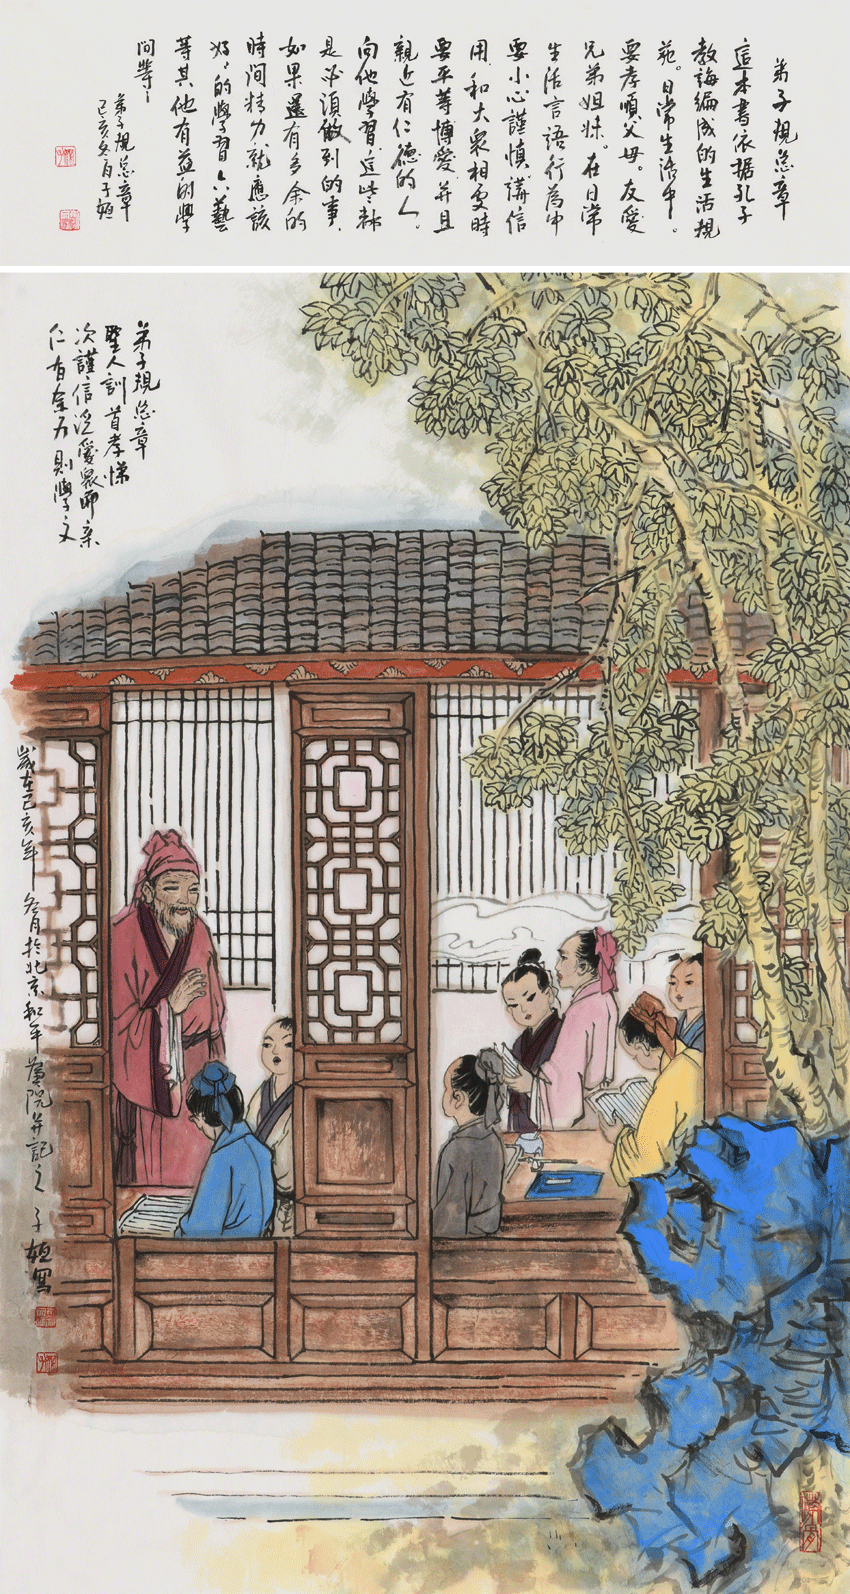 弟子規总章
這本書依据孔子
教誨编成的生活規
范。日常生活中。
要孝順父母。友爱
兄弟姐妹。在日常
生活言語行為中
要小心謹慎。講信
用。和大衆相處時
要平等博愛。并且
親近有仁德的人。
向他學習。這些都
是必須做到的事。
如果還有多余的
時间精力就應該
好好的學習六藝
等其他有益的學
问等等
弟子規总章
己亥冬月子
弟子規总章
聖人訓 首孝悌
次謹信 泛愛衆 而亲
仁 有余力 則學文
歲在己亥年 冬月於北京和平畫院并記之 子 寫